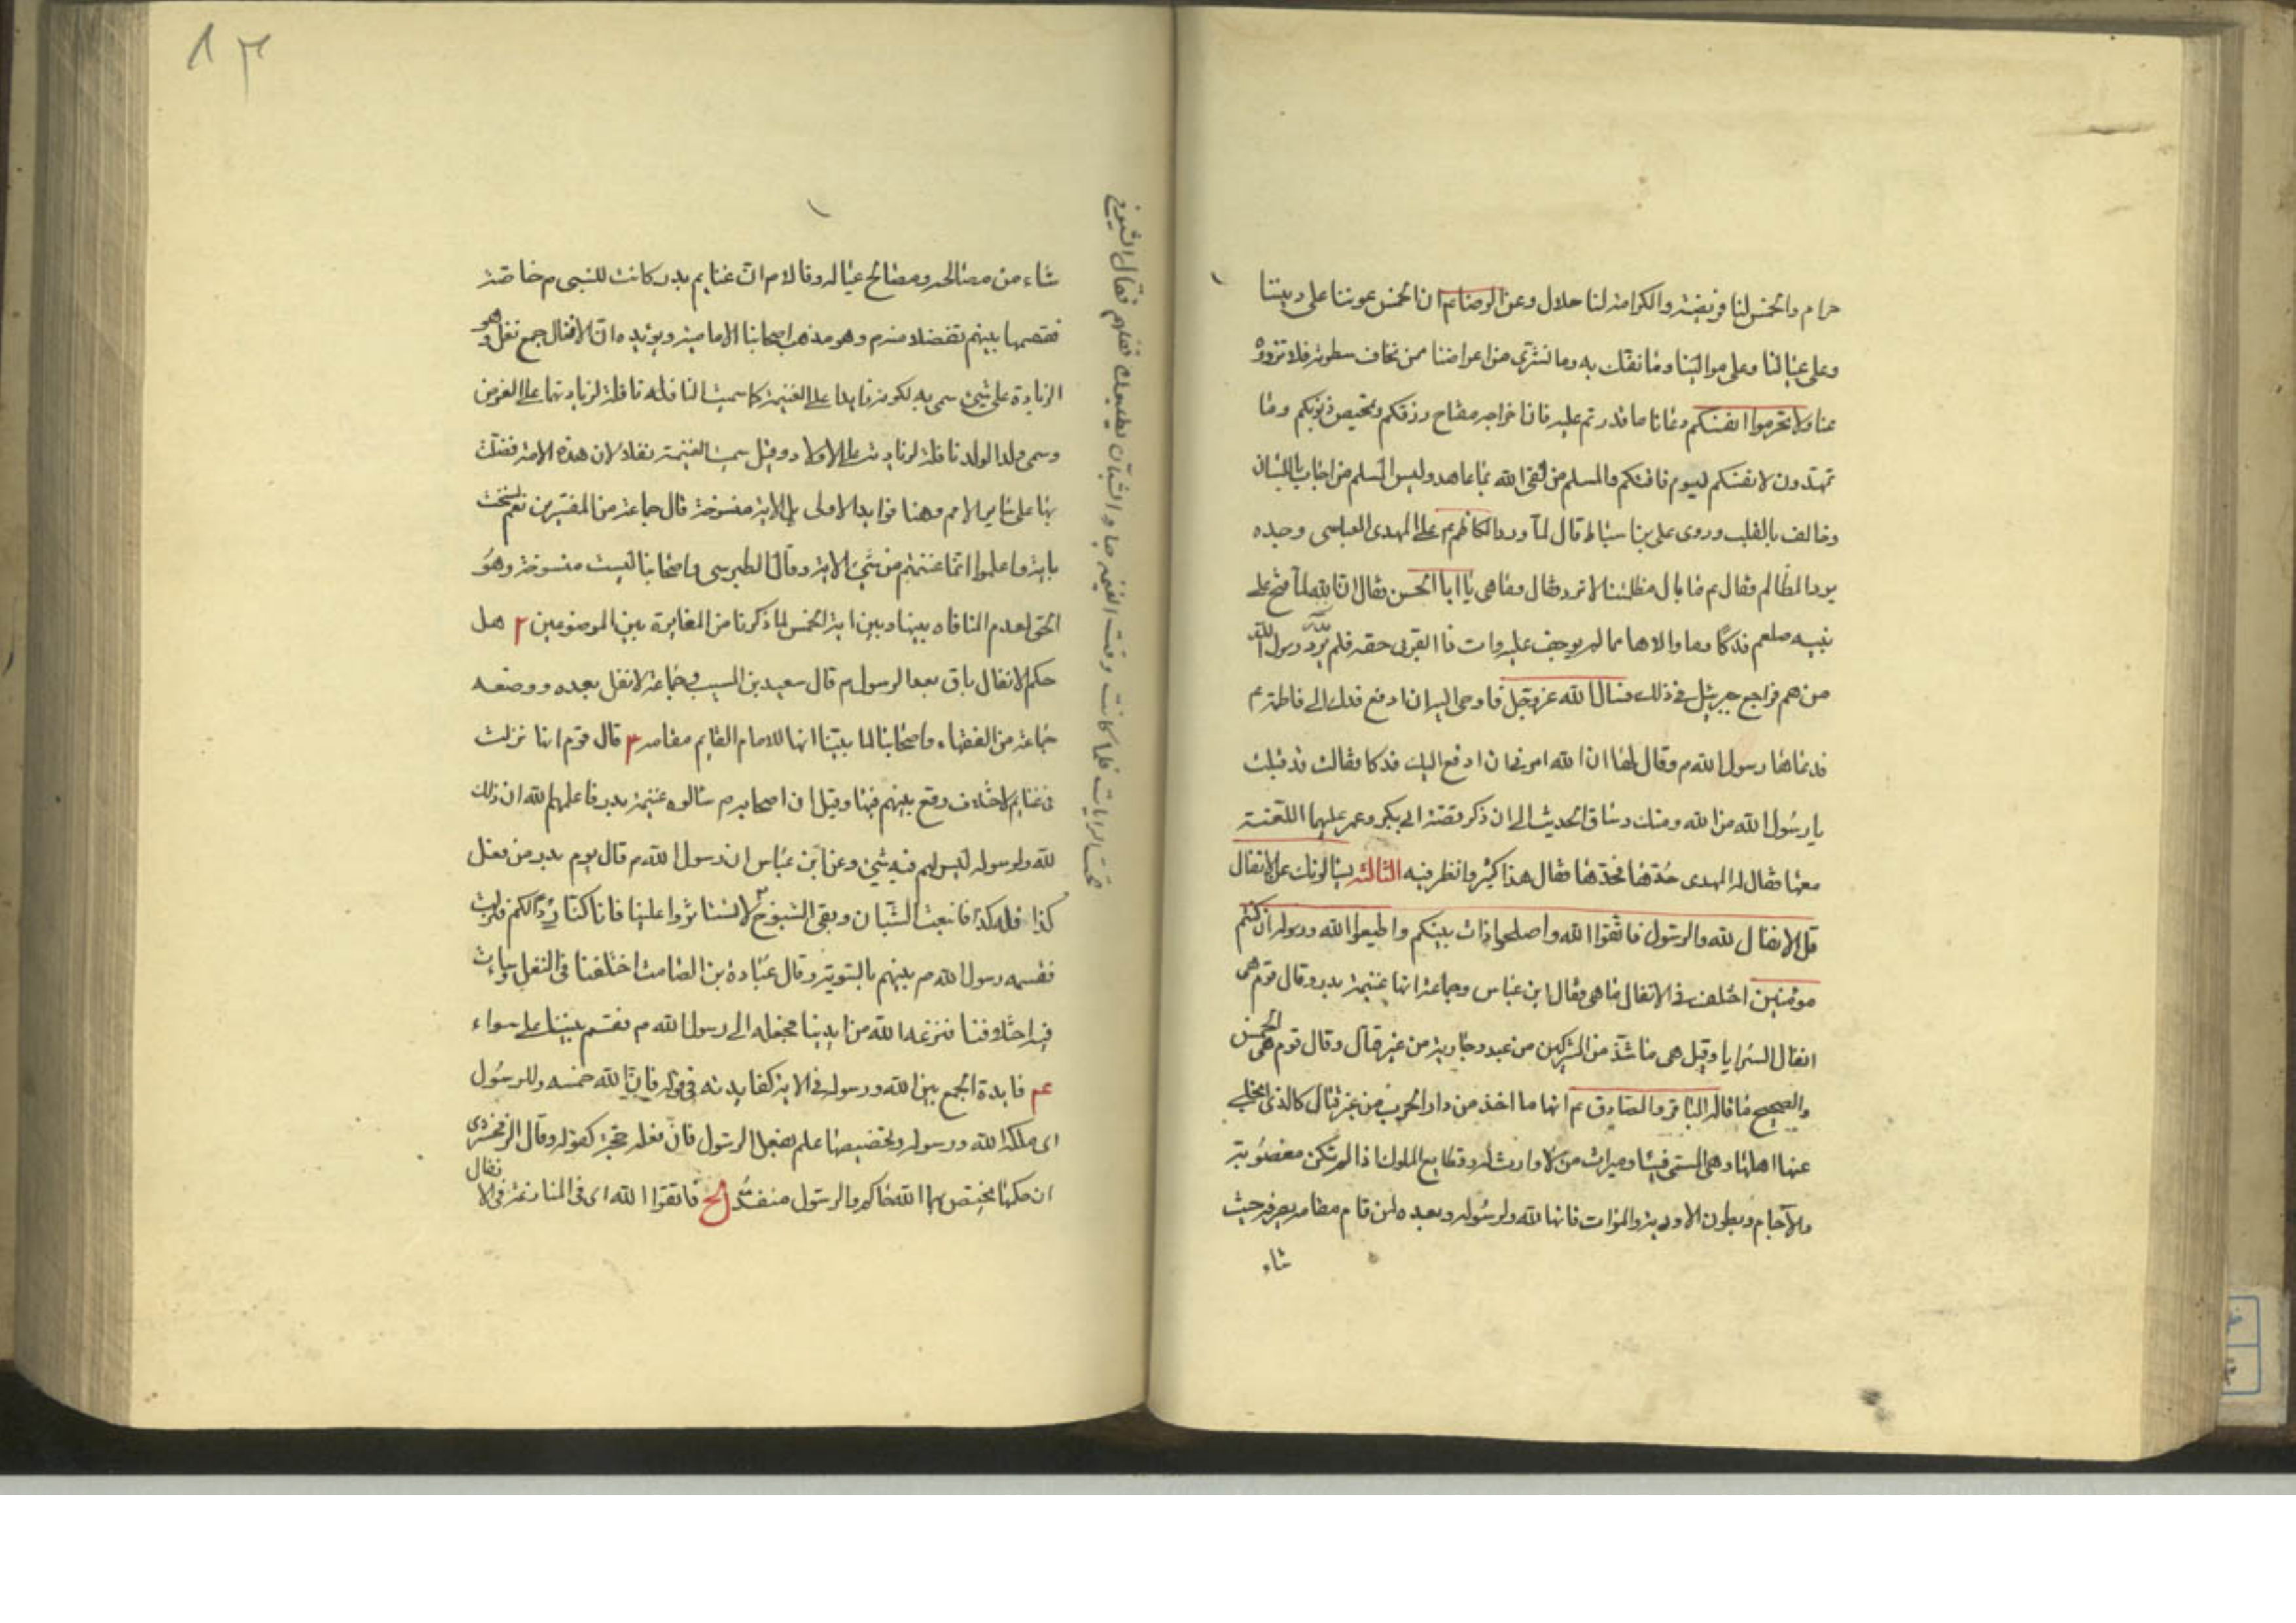 حرام والخمس لنا فريضة والكرامة لنا حلال وعن الرضا عم ان الخمس عوننا على ديننا
وعلى عيالنا وعلى موالينا وما نفك به وما نشتري من اعراضنا ممن نخاف سطوته فلا تزووه
عنا ولا تحرموا انفسكم دعانا ما قدرتم عليه فان اخراجه مفتاح رزقكم وتمحيص ذنوبكم وما
تمهدون لانفسكم ليوم فاقتكم والمسلم من لقى الله بما عاهد وليس المسلم من اجاب باللسان
وخالف بالقلب وروى على بن اسباط قال لما ورد الكاظم عم على المهدى العباسى وجده
يرد المظالم فقال عم ما بال مظلمتنا لا ترد فقال وما هى يا ابا الحسن فقال ان الله لما فتح على
نبيه صلعم فدكا وما والاها مما لم يوجف عليه وات ذا القربى حقه فلم يدر رسول الله
من هم فراجع جبرئيل فى ذلك فسال الله عز وجل فاوحى اليه ان ادفع فدك الى فاطمة عم
فدعاها رسول الله م وقال لها ان الله امرنى ان ادفع اليك فدكا فقالت قد قبلت
يا رسول الله من الله ومنك وساق الحديث الى ان ذكر قصة ابى بكر وعمر عليهما اللعنة
معها فقال له المهدى حدها فحدها فقال هذا كثير وانظر فيه الثالثه يسالونك عن الانفال
قل الانفال لله والرسول فاتقوا الله واصلحوا ذات بينكم واطيعوا الله ورسوله ان كنتم
مومنين اختلف فى الانفال ما هى فقال ابن عباس وجماعة انها غنيمة بدر وقال قوم هى
انفال السرايا وقيل هى ما شذ من المشركين من عبد وجارية من غير قتال وقال قوم هى الخمس
والصحيح ما قاله الباقر والصادق عم انها ما اخذ من دار الحرب من غير قتال كالذى انجلى
عنها اهلها وهى المسمى فيئا وميراث من لا وارث له وقطايع الملوك اذا لم تكن مغصوبة
والآجام وبطون الاودية والموات فانها لله ولرسوله وبعده لمن قام مقامه يصرفه حيث
شاء
شاء من مصالحه ومصالح عياله وقالا م ان غنايم بدر كانت للنبى م خاصة
فقسمها بينهم تفضلا منه م وهو مذهب اصحابنا الامامية ويؤيده ان الانفال جمع نفل وهو
الزيادة على شىء سمى به لكونه زايدا على الغنيمة كما سميت النافله نافلة لزيادتها على الفرض
وسمى ولد الولد نافلة لزيادته على الاولاد وقيل سميت الغنيمة نفلا لان هذه الامة فضلت
بها على ساير الامم وهنا فوايد الاولى هل الاية منسوخة قال جماعة من المفسرين نعم نسخت
باية واعلموا انما غنمتم من شىء الاية وقال الطبرسى واصحابنا ليست منسوخة وهو
الحق لعدم المنافاه بينها وبين اية الخمس لما ذكرنا من المغايرة بين الموضوعين ٢ هل
حكم الانفال باق بعد الرسول م قال سعيد بن المسيب وجماعة لا نفل بعده ووضعه
جماعة من الفقهاء واصحابنا لما بينا انها للامام القايم مقامه ٣ قال قوم انها نزلت
فى غنايم لاختلاف وقع بينهم فيها وقيل ان اصحابه م سالوه غنيمة بدر فاعلمهم الله ان ذلك
لله ولرسوله ليس لهم فيه شىء وعن ابن عباس ان رسول الله م قال يوم بدر من فعل
كذا فله كذا فانبعث الشبان وبقى الشيوخ لا تستاثروا علينا فانا كنا ردا لكم فنزلت
فقسمه رسول الله م بينهم بالسوية وقال عبادة بن الصامت اختلفنا فى النفل وساءت
فيه اخلاقنا فنزعه الله من ايدينا فجعله الى رسول الله م فقسم بيننا على سواء
عم فايدة الجمع بين الله ورسوله فى الاية كفايدته فى قوله فان لله خمسه وللرسول
اى ملكه الله ورسوله وتخصيصها علم بفعل الرسول فان فعله حجة كقوله وقال الزمخشرى
ان حكمها مختص بهما الله حاكم والرسول منفذ الخ فاتقوا الله اى فى المنازعة فى الانفال
تحت الرايات فلما كانت وقت الغنيمه جاء الشبان يطلبون نفلهم فقال الشيوخ